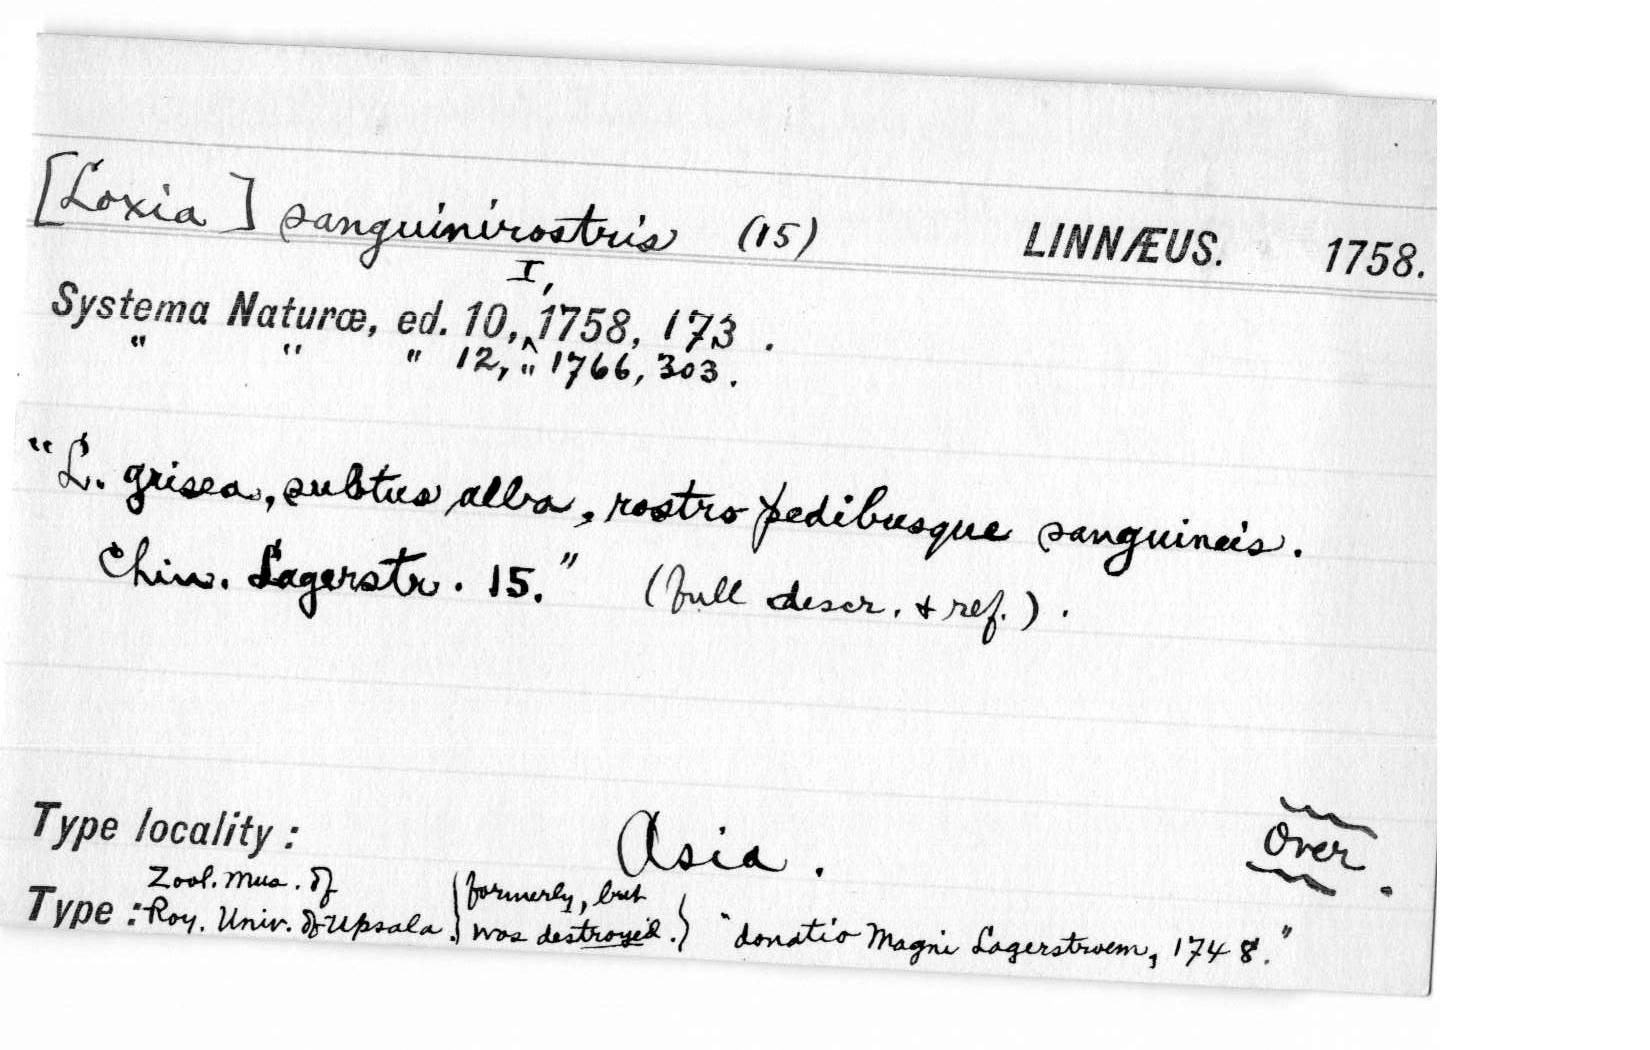 [Loxia] sanguinirostris (15) LINNÆUS. 1758.
I,
Systema Naturæ, ed. 10, ^ 1758, 173.
" " " 12, " 1766, 303.
"L. grisea, subtus alba, rostro pedibusque sanguineis.
Chin. Lagerstr. 15." (full descr. & ref.).
Type locality: Asia. Over.
Zool. Mus. of {formerly, but
Type: Roy. Univ. of Upsala. was destroyed.} "donatio Magni Lagerstroem, 1748."